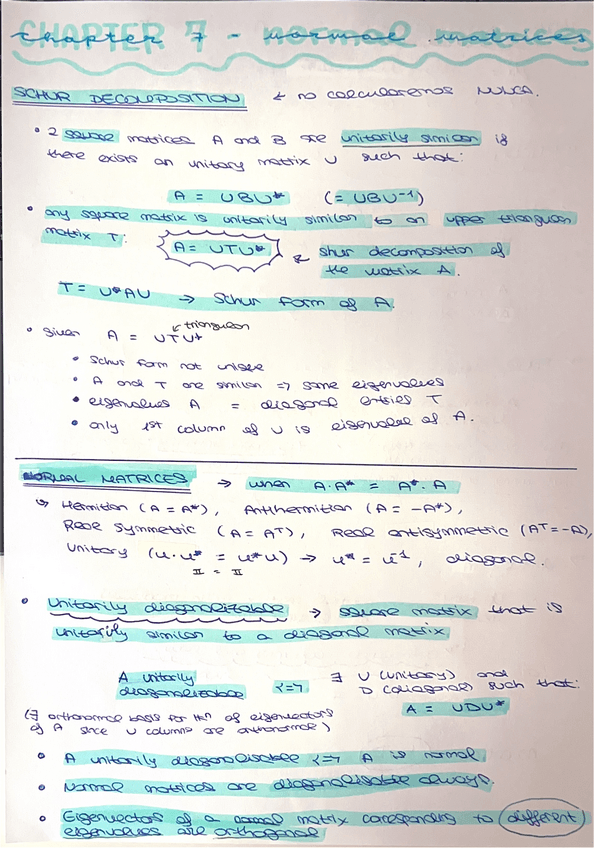 CHAPTER 7 - normal matrices
SCHUR DECOMPOSITION ← no calcularemos NUNCA.
• 2 square matrices A and B are unitarily similar if
there exists an unitary matrix U such that:
A = UBU* (= UBU⁻¹)
• any square matrix is unitarily similar to an upper triangular
matrix T: A = UTU* ← shur decomposition of
the matrix A.
T = U*AU → Schur form of A.
• Given A = UTU* ← triangular
• Schur form not unique
• A and T are similar => same eigenvalues
• eigenvalues A = diagonal entries T
• only 1st column of U is eigenvalue of A.
NORMAL MATRICES → when A·A* = A*·A
↳ Hermitian (A = A*), Antihermitian (A = -A*),
Real symmetric (A = Aᵀ), Real antisymmetric (Aᵀ = -A),
Unitary (u·u* = u*u) → u* = u⁻¹, diagonal.
II = II
• Unitarily diagonalizable → square matrix that is
unitarily similar to a diagonal matrix
A unitarily
diagonalizable <=> ∃ U (unitary) and
D (diagonal) such that:
A = UDU*
(∃ orthonormal basis for ℍⁿ of eigenvectors
of A since U columns are orthonormal)
• A unitarily diagonalisable <=> A is normal.
• Normal matrices are diagonalisable always.
• Eigenvectors of a normal matrix corresponding to different
eigenvalues are orthogonal